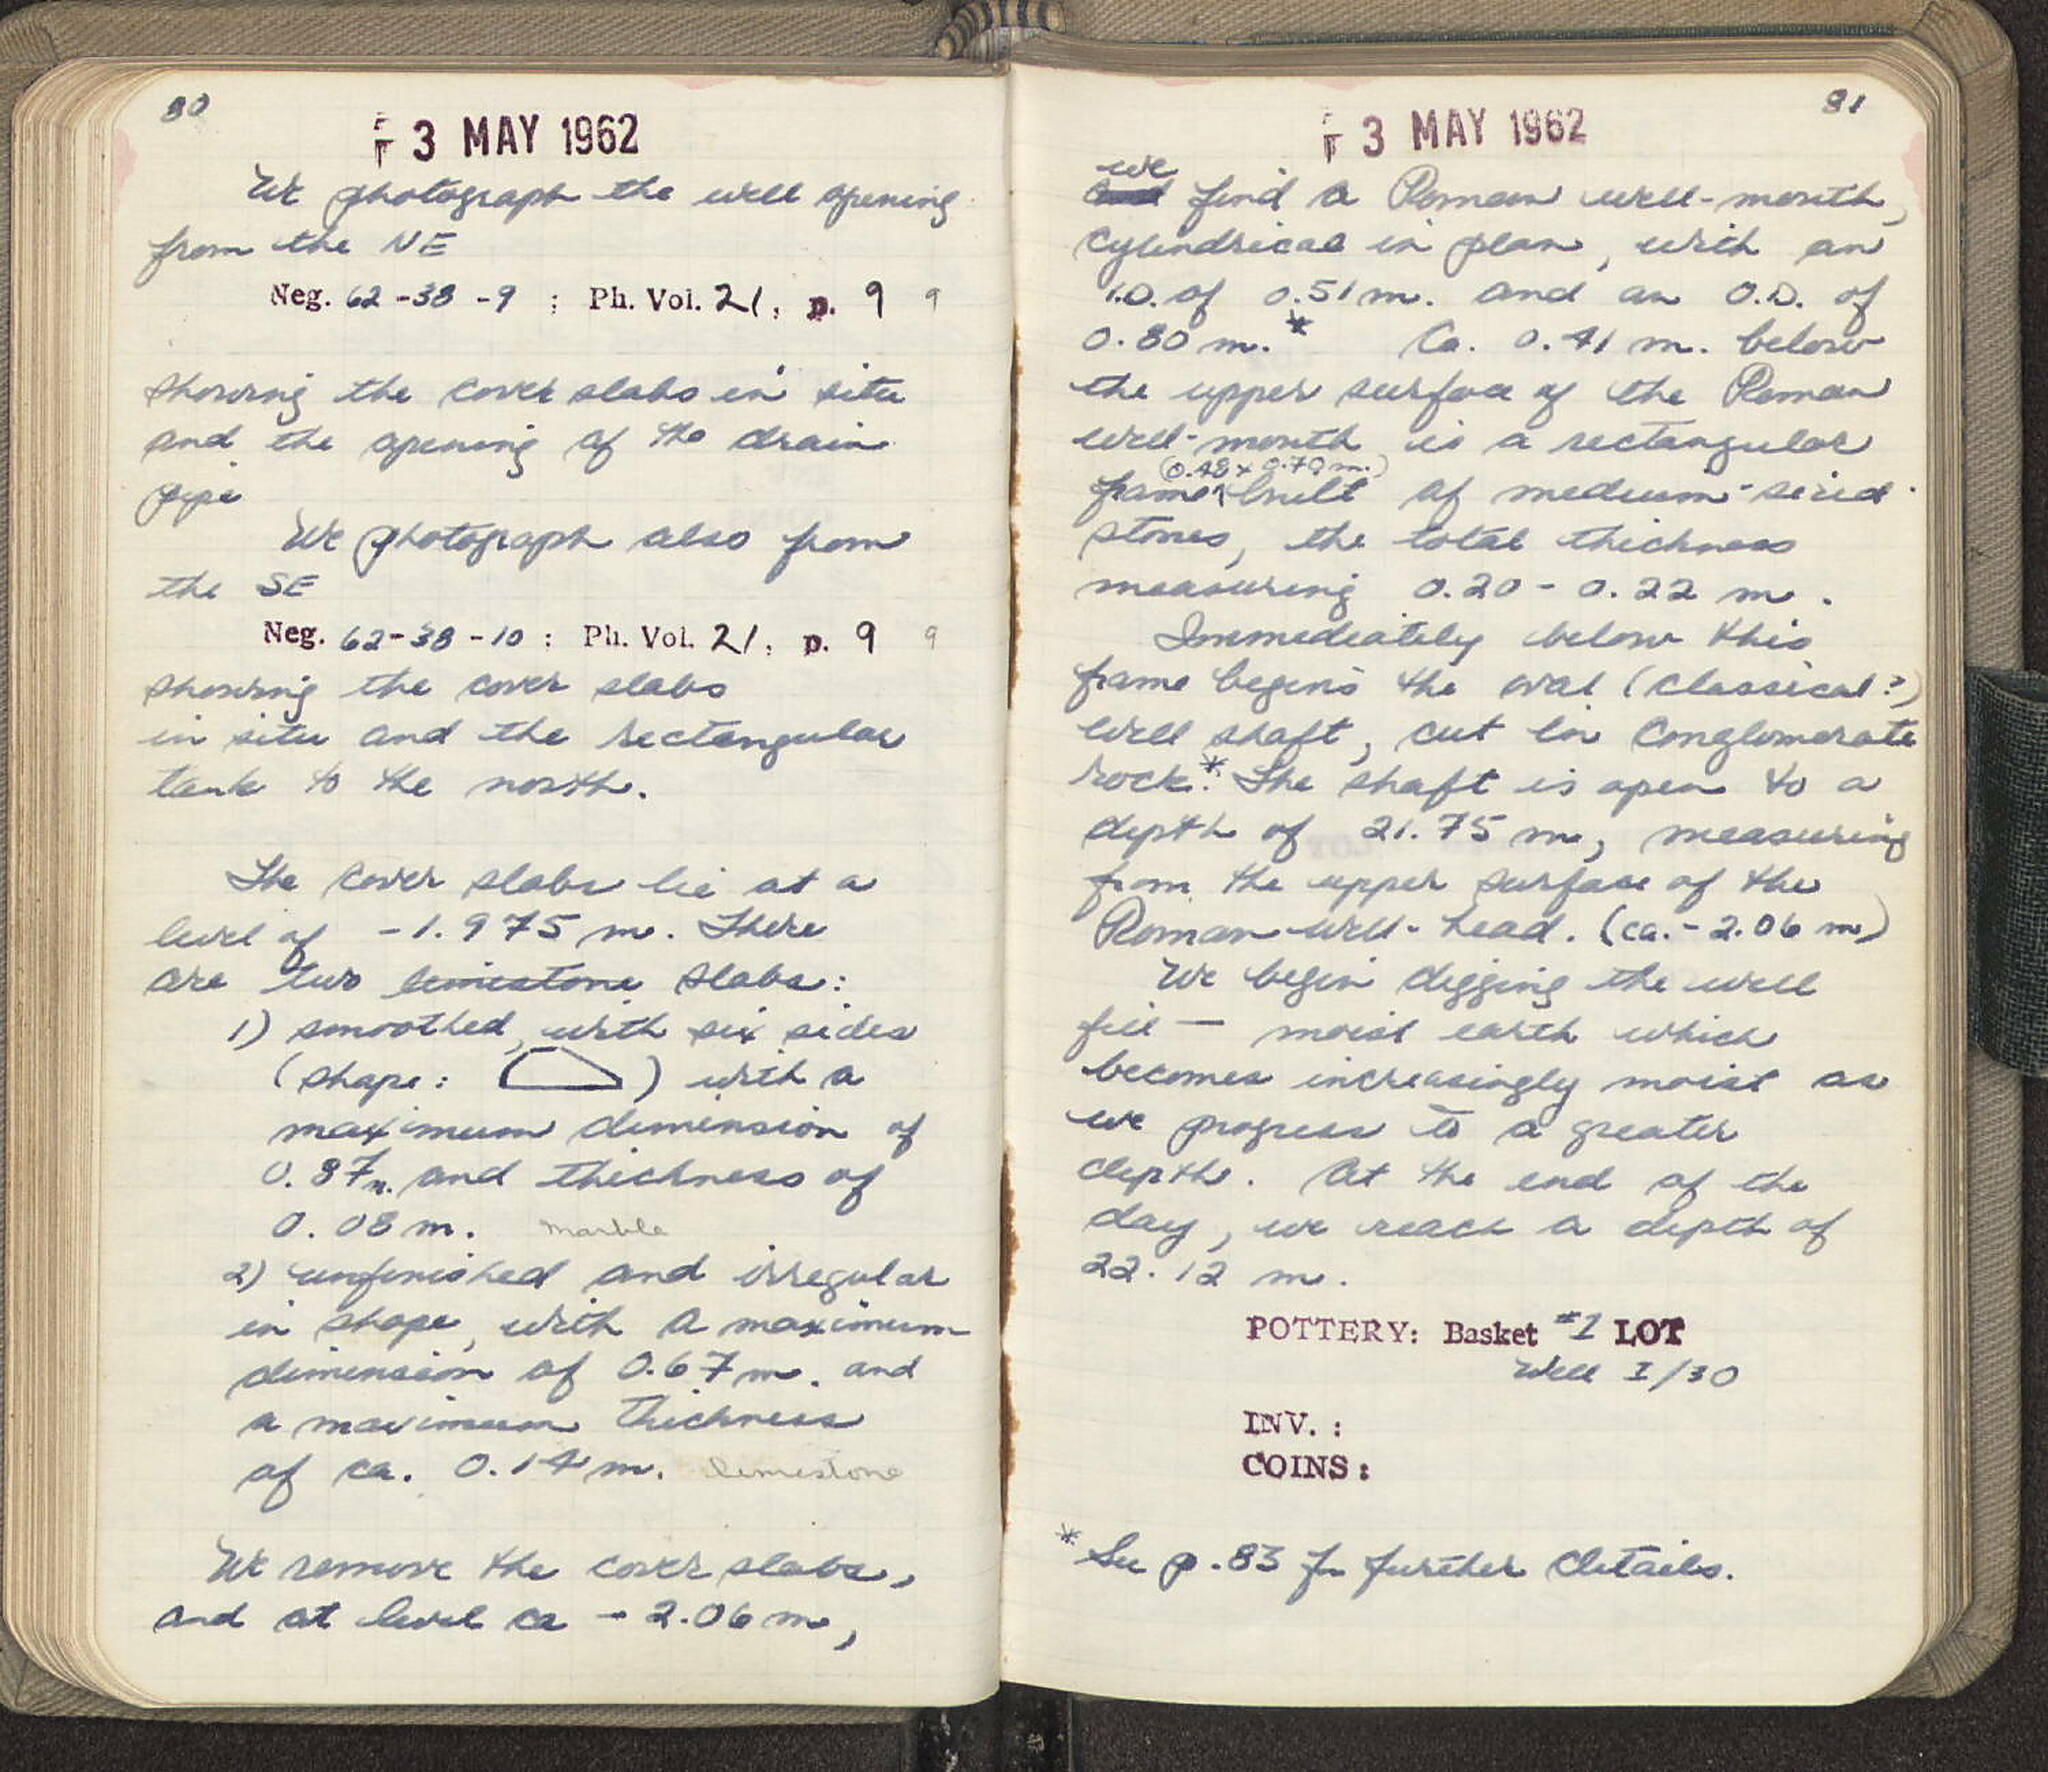 80
3 MAY 1962
We photograph the well opening
from the NE
Neg. 62-38-9 ; Ph. Vol. 21, p. 9 9
showing the cover slabs in situ
and the opening of the drain
pipe
We photograph also from
the SE
Neg. 62-38-10 ; Ph. Vol. 21, p. 9 9
showing the cover slabs
in situ and the rectangular
tank to the north.
The cover slabs lie at a
level of -1.975 m. There
are two limestone slabs:
1) smoothed, with six sides
(shape: ) with a
maximum dimension of
0.87m. and thickness of
0.08 m. marble
2) unfinished and irregular
in shape, with a maximum
dimension of 0.67 m. and
a maximum thickness
of ca. 0.14 m. limestone
We remove the cover slabs,
and at level ca - 2.06 m,
81
3 MAY 1962
we
find a Roman well-mouth,
cylindrical in plan, with an
I.D. of 0.51 m. and an O.D. of
0.80 m.* Ca. 0.41 m. below
the upper surface of the Roman
well-mouth is a rectangular
(0.48 x 0.70 m.)
frame built of medium-sized
stones, the total thickness
measuring 0.20 - 0.22 m.
Immediately below this
frame begins the oval (classical?)
well shaft, cut in conglomerate
rock.* The shaft is open to a
depth of 21.75 m, measuring
from the upper surface of the
Roman well-head. (ca. - 2.06 m)
We begin digging the well
fill — moist earth which
becomes increasingly moist as
we progress to a greater
depth. At the end of the
day, we reach a depth of
22.12 m.
POTTERY: Basket #1 LOT
Well I/30
INV. :
COINS :
* See p. 83 for further details.